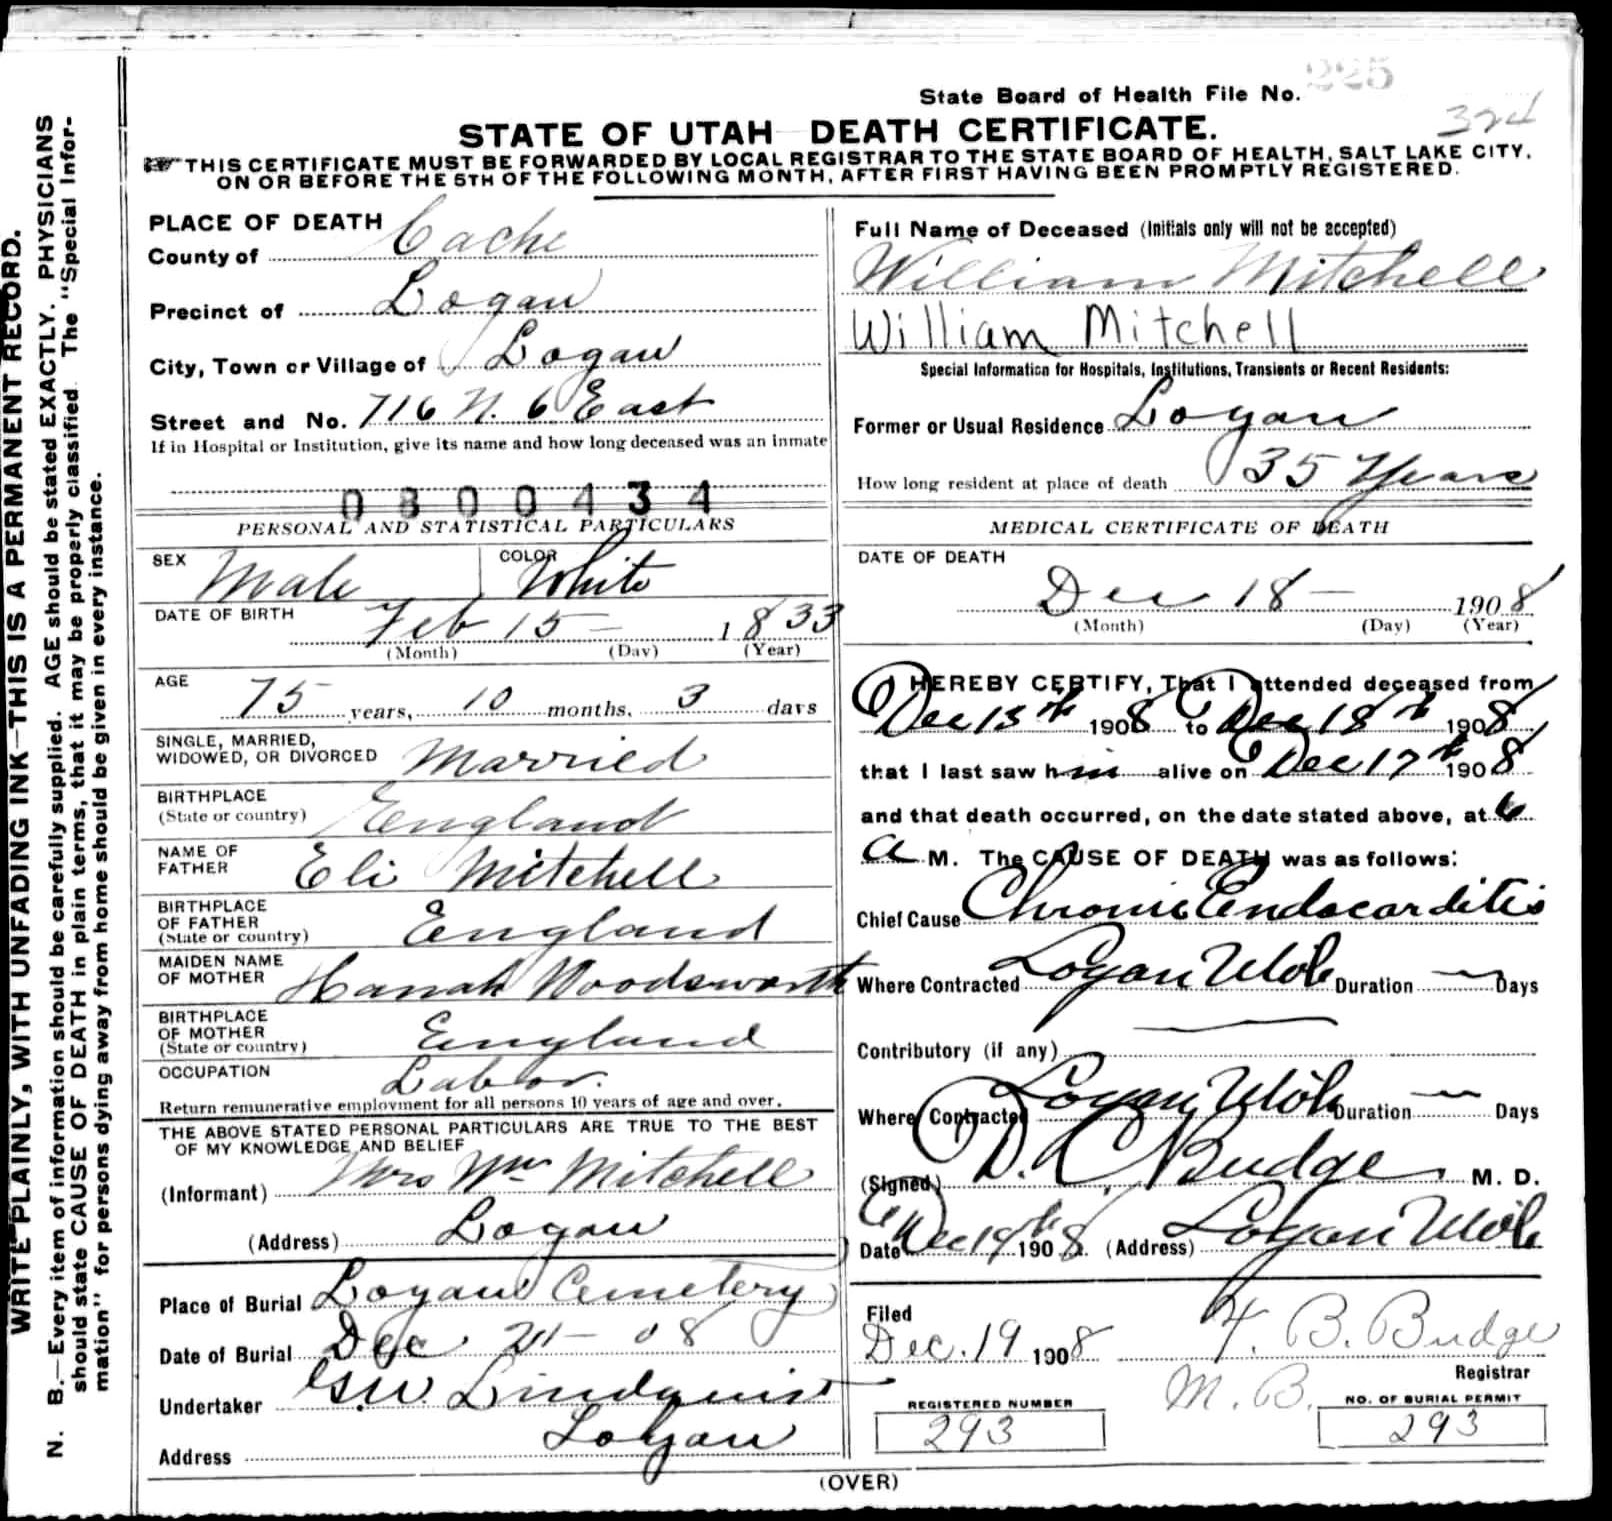 State Board of Health File No. 225
324
STATE OF UTAH DEATH CERTIFICATE.
THIS CERTIFICATE MUST BE FORWARDED BY LOCAL REGISTRAR TO THE STATE BOARD OF HEALTH, SALT LAKE CITY,
ON OR BEFORE THE 5TH OF THE FOLLOWING MONTH, AFTER FIRST HAVING BEEN PROMPTLY REGISTERED.
WRITE PLAINLY, WITH UNFADING INK—THIS IS A PERMANENT RECORD.
N. B.—Every item of information should be carefully supplied. AGE should be stated EXACTLY. PHYSICIANS
should state CAUSE OF DEATH in plain terms, that it may be properly classified. The "Special Infor-
mation" for persons dying away from home should be given in every instance.
PLACE OF DEATH
County of Cache
Precinct of Logan
City, Town or Village of Logan
Street and No. 716 N. 6 East
If in Hospital or Institution, give its name and how long deceased was an inmate
0800434
PERSONAL AND STATISTICAL PARTICULARS
SEX Male COLOR White
DATE OF BIRTH Feb 15 – 1833
(Month) (Day) (Year)
AGE 75 years, 10 months, 3 days
SINGLE, MARRIED,
WIDOWED, OR DIVORCED Married
BIRTHPLACE
(State or country) England
NAME OF
FATHER Eli Mitchell
BIRTHPLACE
OF FATHER
(State or country) England
MAIDEN NAME
OF MOTHER Hanah Woodsworth
BIRTHPLACE
OF MOTHER
(State or country) England
OCCUPATION Labor.
Return remunerative employment for all persons 10 years of age and over.
THE ABOVE STATED PERSONAL PARTICULARS ARE TRUE TO THE BEST
OF MY KNOWLEDGE AND BELIEF
(Informant) Mrs Wm Mitchell
(Address) Logan
Place of Burial Logan Cemetery
Date of Burial Dec – 08
Undertaker Lindquist
Address Logan
Full Name of Deceased (Initials only will not be accepted)
William Mitchell
William Mitchell
Special Information for Hospitals, Institutions, Transients or Recent Residents:
Former or Usual Residence Logan
How long resident at place of death 35 Years
MEDICAL CERTIFICATE OF DEATH
DATE OF DEATH
Dec 18 – 1908
(Month) (Day) (Year)
I HEREBY CERTIFY, That I attended deceased from
Dec 15th 1908 to Dec 18th 1908
that I last saw him alive on Dec 17th 1908
and that death occurred, on the date stated above, at 6
a M. The CAUSE OF DEATH was as follows:
Chief Cause Chronic Endocarditis
Where Contracted Logan Utah Duration — Days
Contributory (if any) —
Where Contracted Logan Utah Duration — Days
(Signed) D. C. Budge, M. D.
Date Dec 19th 1908. (Address) Logan Utah
Filed
Dec. 19 1908 B. Budge
Registrar
M. B.
REGISTERED NUMBER
293
NO. OF BURIAL PERMIT
293
(OVER)